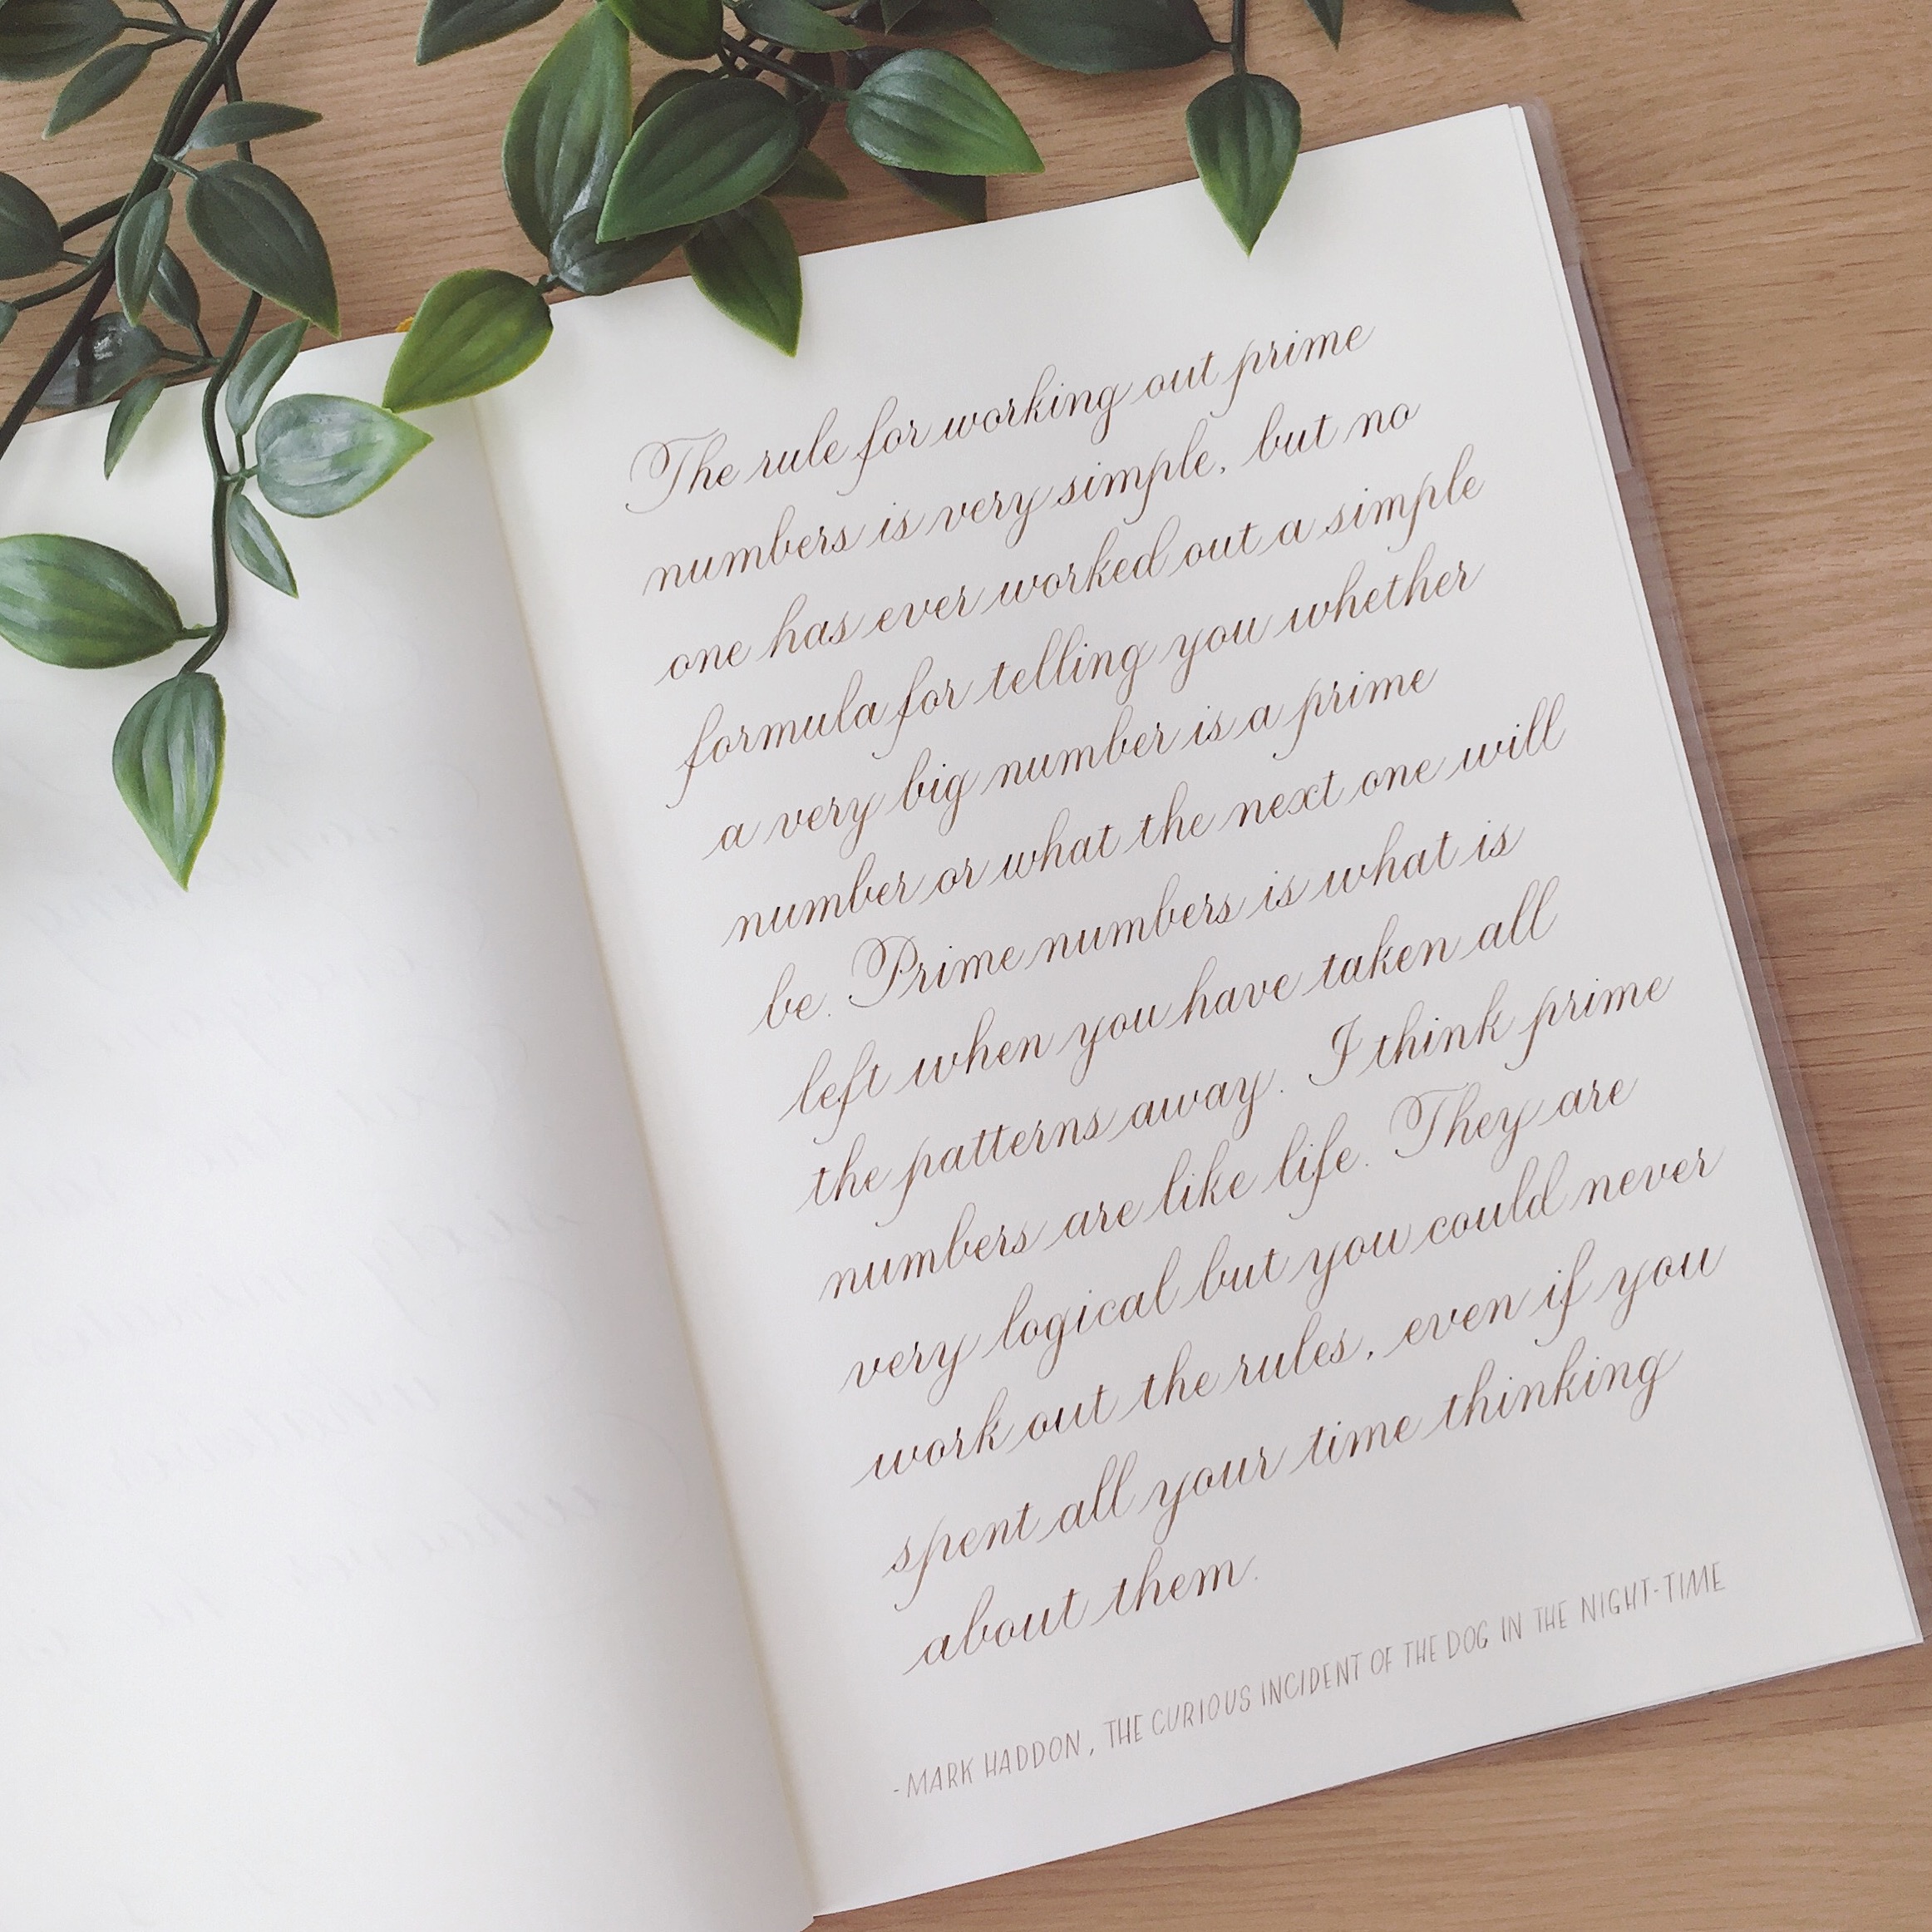 The rule for working out prime
numbers is very simple, but no
one has ever worked out a simple
formula for telling you whether
a very big number is a prime
number or what the next one will
be. Prime numbers is what is
left when you have taken all
the patterns away. I think prime
numbers are like life. They are
very logical but you could never
work out the rules, even if you
spent all your time thinking
about them.
-MARK HADDON, THE CURIOUS INCIDENT OF THE DOG IN THE NIGHT-TIME